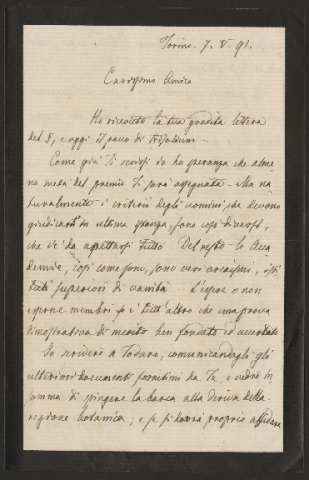 Torino. 7. V. 91.
Carissimo Amico
Ho ricevuto la tua gradita lettera
del 5, e oggi il pacco di Trifolium.
Come già Ti scrissi io ho speranza che alme
no metà del premio Ti sarà assegnata. Ma na
turalmente i criteri degli uomini, che devono
giudicarti in ultima istanza, sono così diversi,
che v'è da aspettarsi tutto. Del resto le Acca
demie, così come sono, sono veri arcaismi, isti
tuti superiori di vanità. L'essere o non
esserne membri si è tutt'altro che una prova
dimostrativa di merito ben fondato ed accertato.
Io scriverò a Todaro, comunicandogli gli
ulteriori documenti fornitimi da Te, e vedrò in
somma di spingere la barca alla deriva della
regione botanica; e se si dovrà proprio affidare